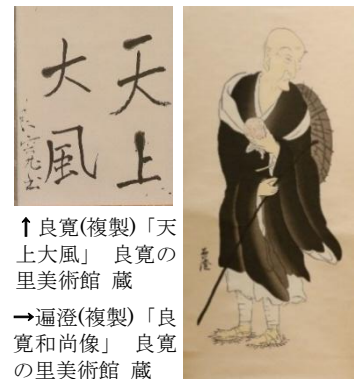 天上
大風
良寛書
↑良寛(複製)「天
上大風」 良寛の
里美術館 蔵
→遍澄(複製)「良
寛和尚像」 良寛
の里美術館 蔵
遍澄